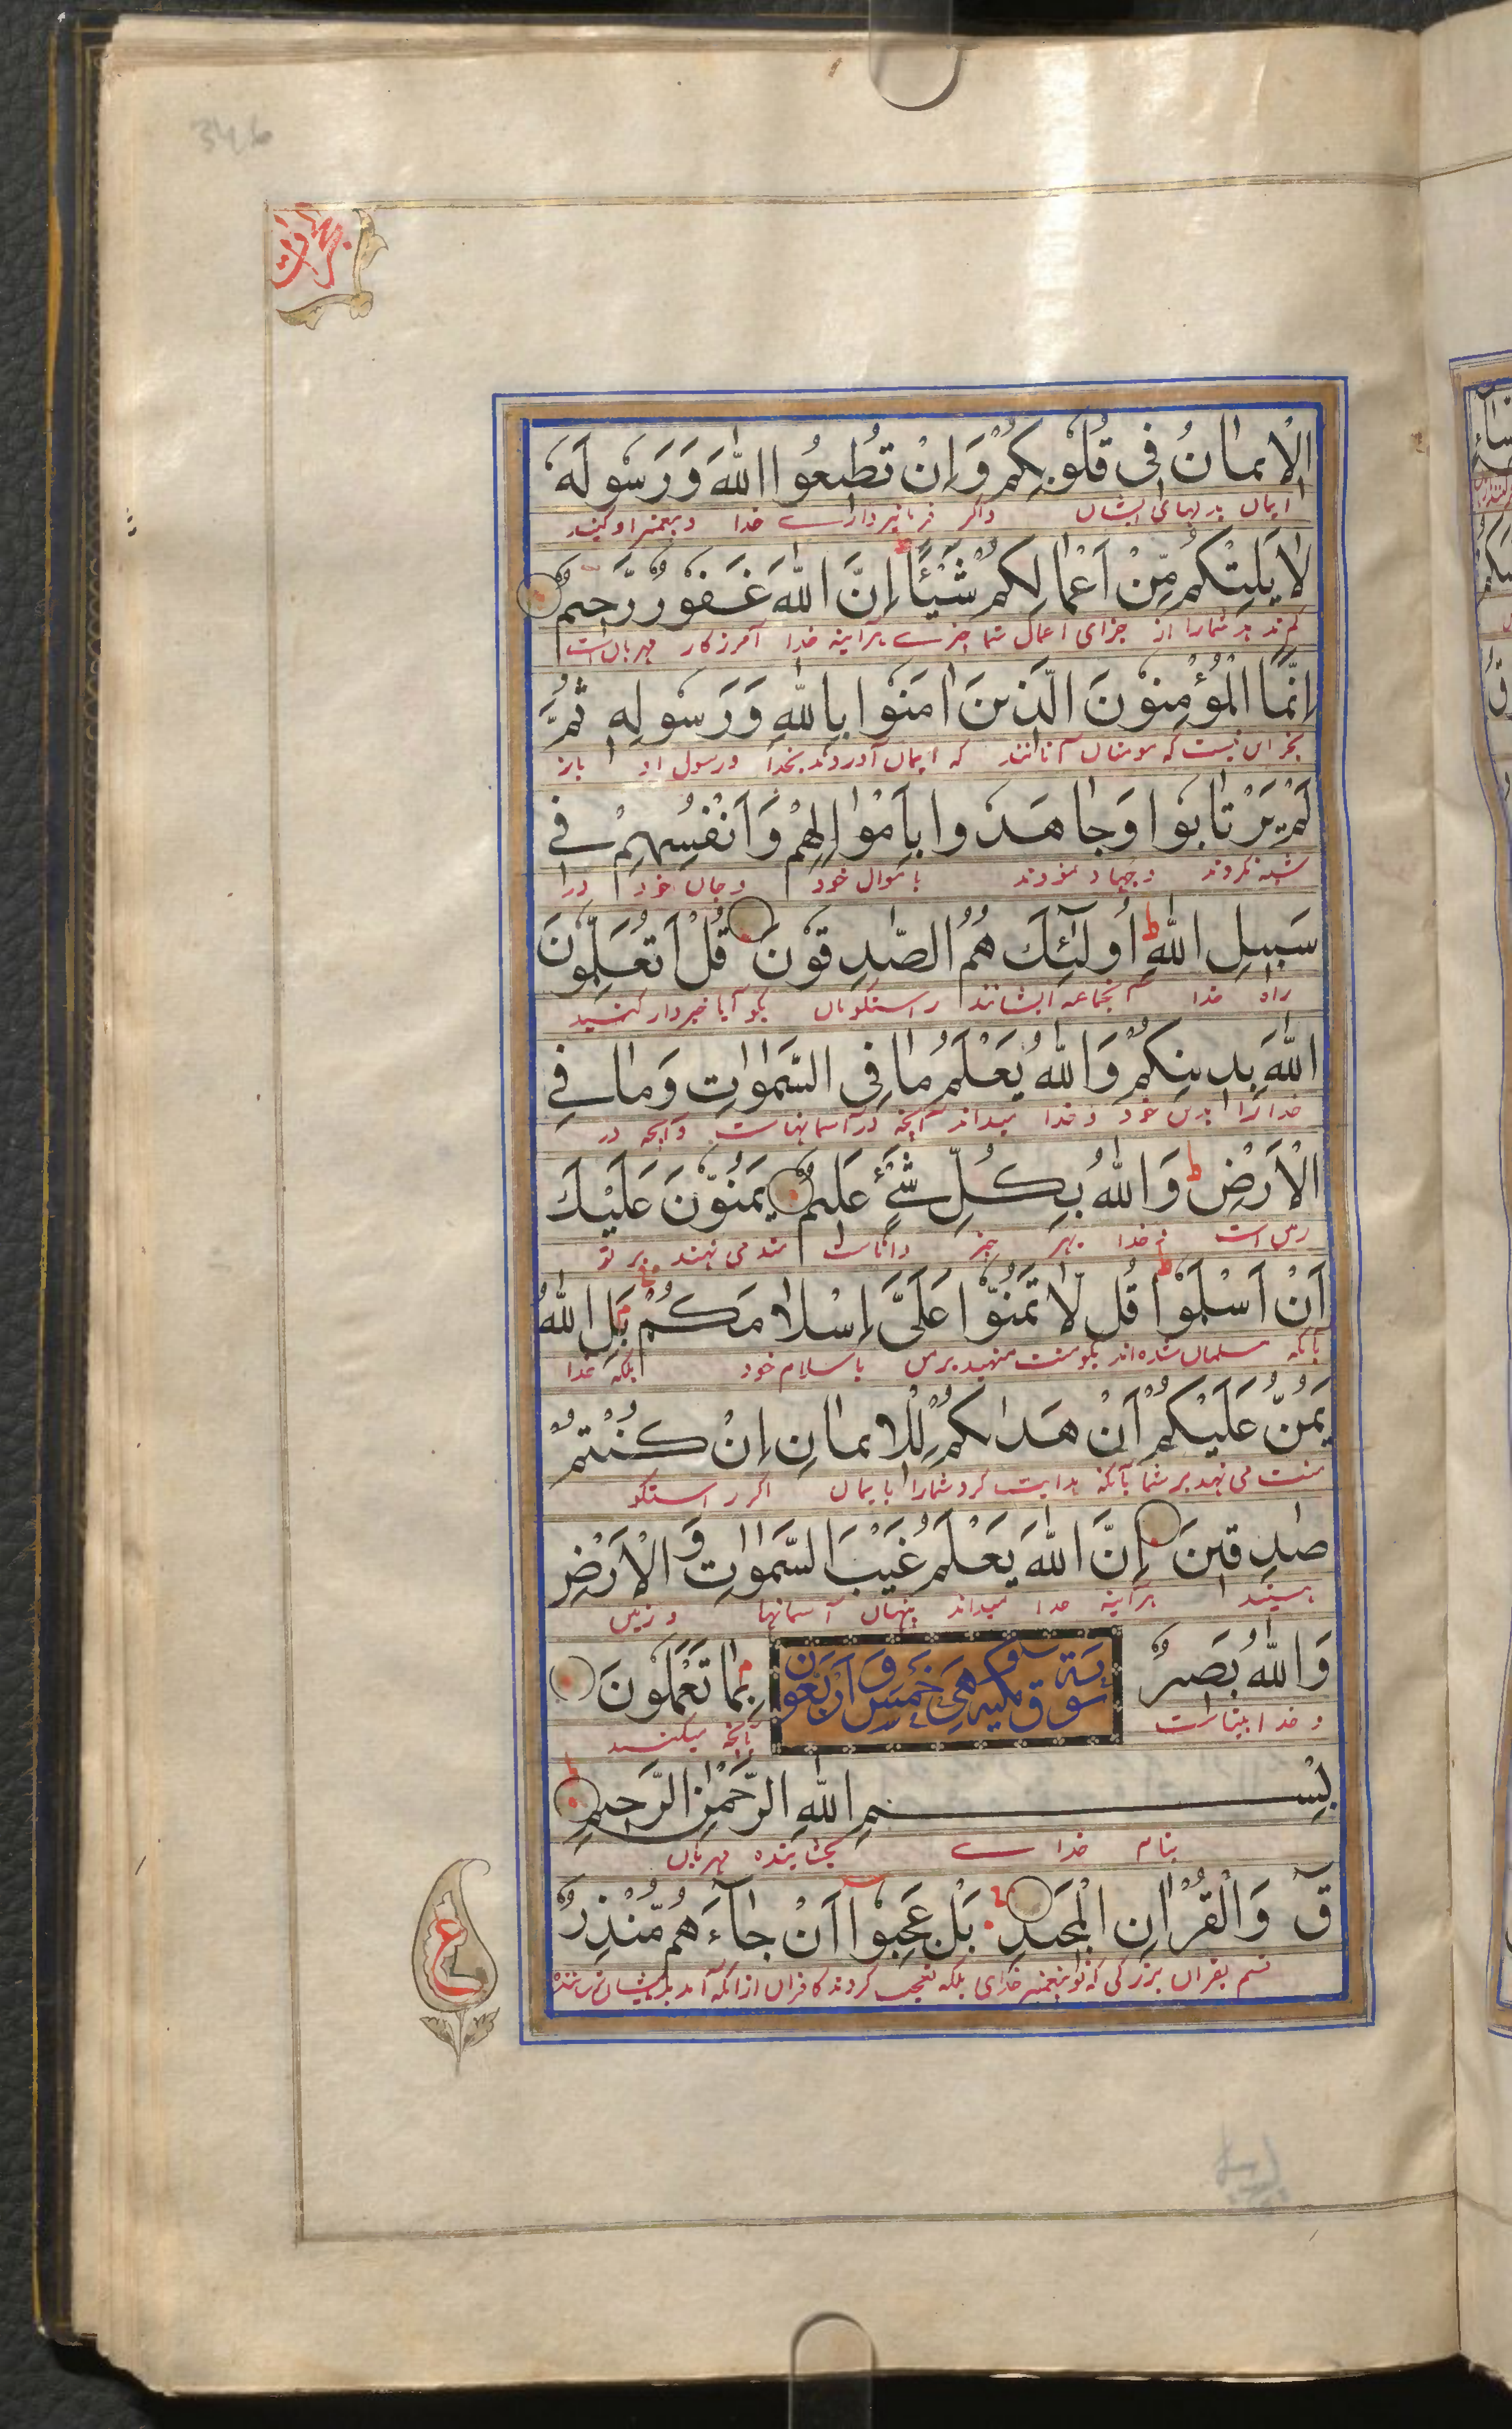 346
حجرات
الْاِیمٰانُ فِی قُلُوبِکُمْ وَاِنْ تُطِیعُوا اللّٰهَ وَرَسُولَهُ
ایمان بدلهای ایشان واگر فرمانبرداری خدا وپیغمبر او کنید
لٰا یَلِتْکُمْ مِّنْ اَعْمٰالِکُمْ شَیْئًا ط اِنَّ اللّٰهَ غَفُورٌ رَّحِیمٌ
کم ندهد شمارا از جزای اعمال شما چیزے هرآینه خدا آمرزکار مهربان است
اِنَّمَا الْمُؤْمِنُونَ الَّذِینَ اٰمَنُوا بِاللّٰهِ وَرَسُولِهِ ثُمَّ
جز این نیست که مومنان آنانند که ایمان آوردند بخدا ورسول او باز
لَمْ یَرْتٰابُوا وَجٰاهَدُوا بِاَمْوٰالِهِمْ وَاَنْفُسِهِمْ فِے
شبه نکردند وجهاد نمودند باموال خود وجان خود در
سَبِیلِ اللّٰهِ ط اُولٰٓئِكَ هُمُ الصّٰدِقُونَ قُلْ اَتُعَلِّمُونَ
راه خدا آنجماعه ایشانند راستکویان بکو آیا خبردار کنید
اللّٰهَ بِدِینِکُمْ وَاللّٰهُ یَعْلَمُ مٰا فِی السَّمٰوٰاتِ وَمٰا فِے
خدا را بدین خود وخدا میداند آنچه در آسمانهاست وآنچه در
الْاَرْضِ ط وَاللّٰهُ بِکُلِّ شَےْءٍ عَلِیمٌ یَمُنُّونَ عَلَیْكَ
زمین است وخدا بهر چیز داناست منت می نهند بر تو
اَنْ اَسْلَمُوا ط قُل لّٰا تَمُنُّوا عَلَیَّ اِسْلٰامَکُمْ بَلِ اللّٰهُ
بآنکه مسلمان شده اند بکو منت منهید برمن باسلام خود بلکه خدا
یَمُنُّ عَلَیْکُمْ اَنْ هَدٰاکُمْ لِلْاِیمٰانِ اِنْ کُنْتُمْ
منت می نهد بر شما بآنکه هدایت کرد شمارا بایمان اکر راستکو
صٰدِقِینَ اِنَّ اللّٰهَ یَعْلَمُ غَیْبَ السَّمٰوٰاتِ وَالْاَرْضِ
هستید هرآینه خدا میداند پنهان آسمانها وزمین
وَاللّٰهُ بَصِیرٌ بِمٰا تَعْمَلُونَ
سورة ق مکیه وهی خمس واربعون
وخدا بیناست بآنچه میکنید
بِسْمِ اللّٰهِ الرَّحْمٰنِ الرَّحِیمِ
بنام خداے بخشاینده مهربان
قٓ وَالْقُرْاٰنِ الْمَجِیدِ بَلْ عَجِبُوا اَنْ جٰآءَهُمْ مُّنْذِرٌ
قسم بقران بزرکی که تو پیغمبر خدای بلکه تعجب کردند کافران ازانکه آمد بدیشان ترساننده
ع